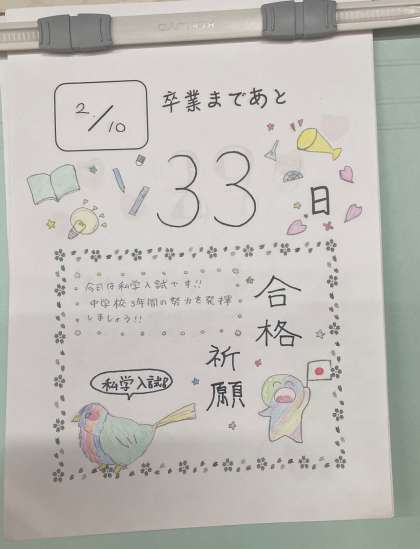 2/10
卒業まであと
33
日
今日は私学入試です!!
中学校3年間の努力を発揮
しましょう!!
合格
祈願
私学入試!!